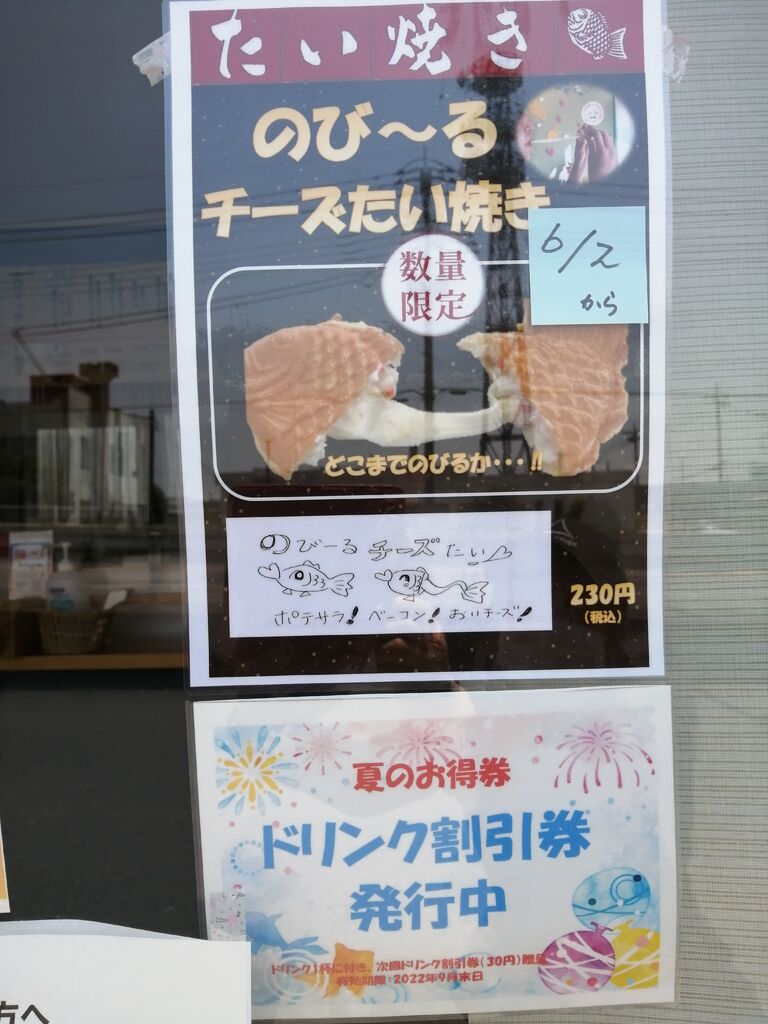 たい焼き
のび～る
チーズたい焼き
6/2
から
数量
限定
どこまでのびるか・・・!!
のびーるチーズたい♪
ポテサラ!ベーコン!おいチーズ!
230円
(税込)
夏のお得券
ドリンク割引券
発行中
ドリンク1杯に付き、次回ドリンク割引券(30円)贈呈
有効期限:2022年9月末日
方へ